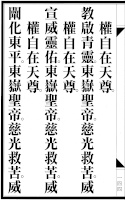 權自在天尊。
教啟青靈東嶽聖帝。慈光救苦。威
權自在天尊。
宣威靈佑東嶽聖帝。慈光救苦。威
權自在天尊。
闡化東平東嶽聖帝。慈光救苦。威